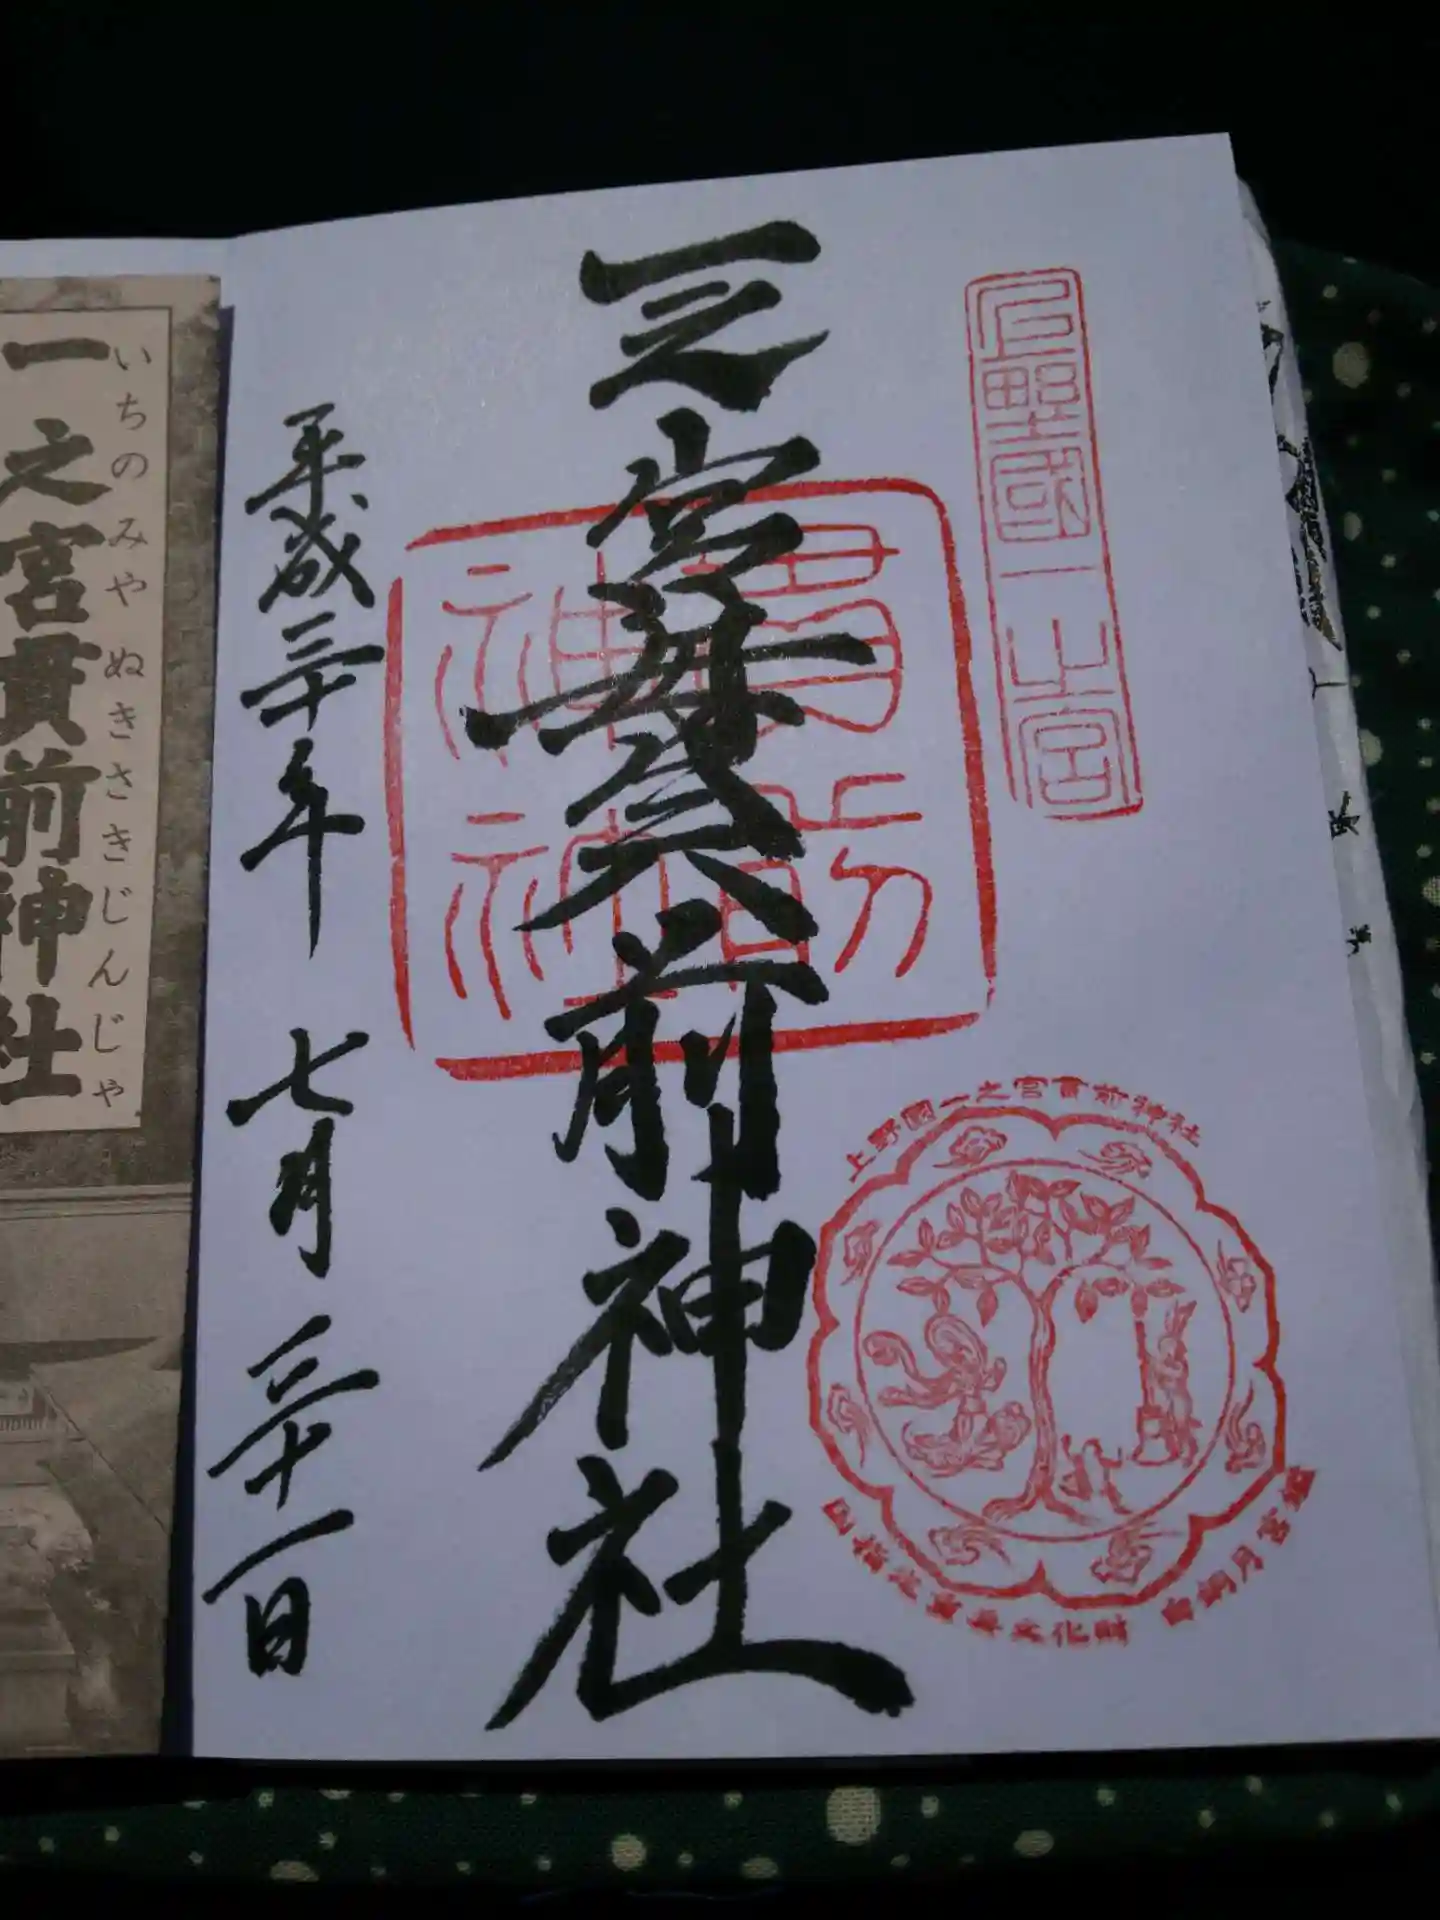 上野國一之宮
一之宮貫前神社
貫前神社
上野國一之宮貫前神社
国指定重要文化財 白銅月宮鑑
平成三十年 七月 三十一日
いちのみやぬきさきじんじゃ
一之宮貫前神社